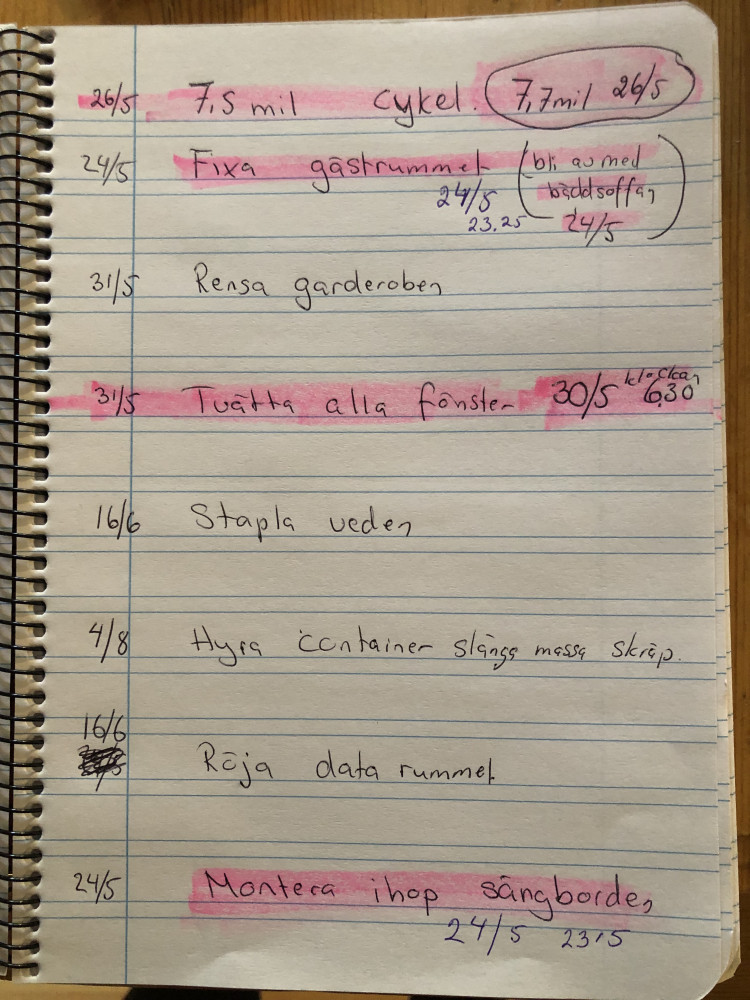 26/5 7,5 mil cykel. 7,7mil 26/5
24/5 Fixa gästrummet (bli av med
bäddsoffan
24/5)
24/5
23.25
31/5 Rensa garderoben
klockan
31/5 Tvätta alla fönster 30/5 6.30
16/6 Stapla veden
4/8 Hyra container slänga massa skräp.
16/6
Röja data rummet
24/5 Montera ihop sängborden
24/5 23:5